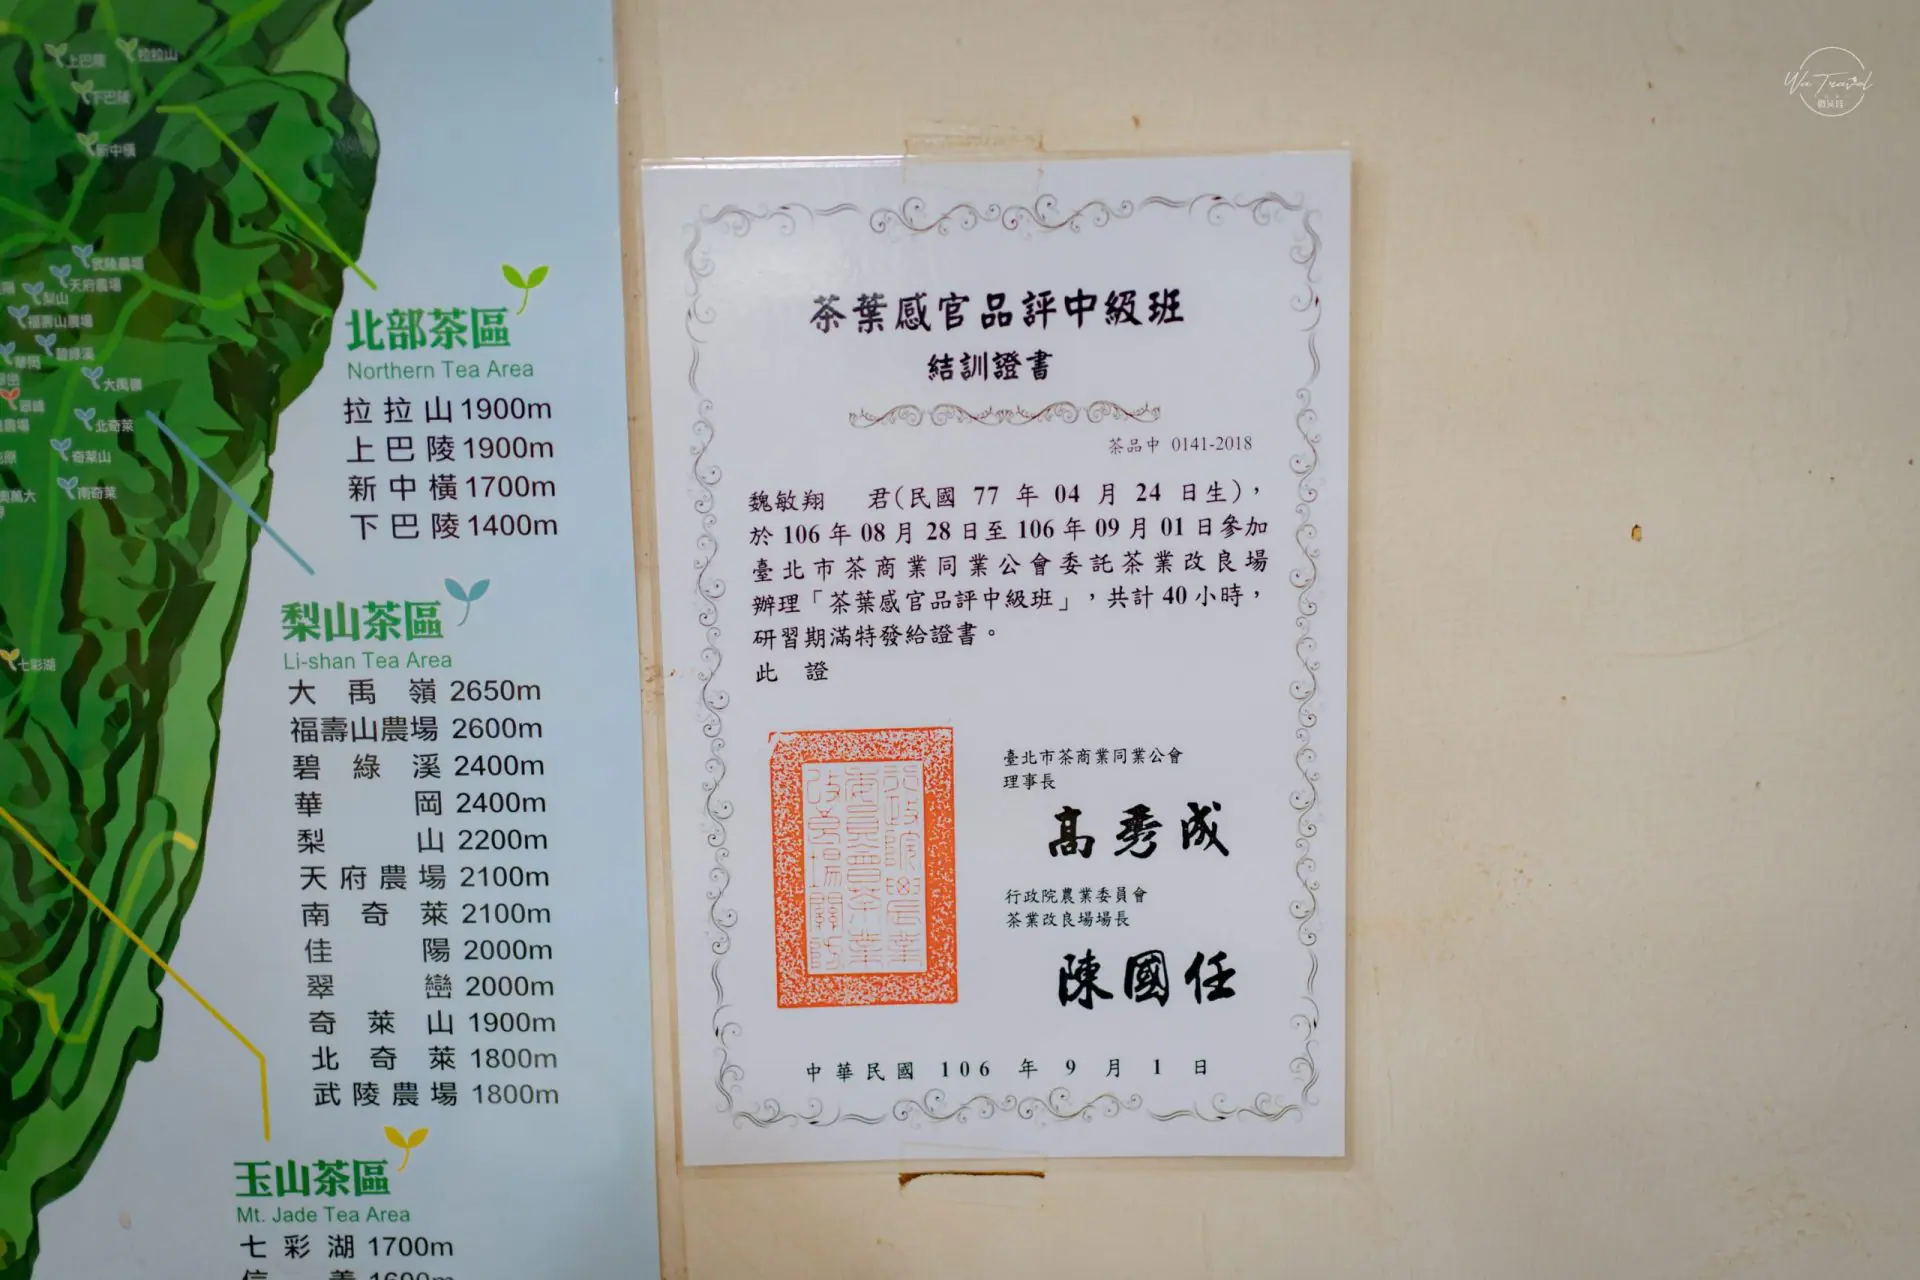 上巴陵
拉拉山
下巴陵
新中橫
武陵農場
天府農場
梨山
福壽山農場
碧綠溪
華岡
大禹嶺
北奇萊
奇萊山
南奇萊
奧萬大
七彩湖
北部茶區
Northern Tea Area
拉拉山 1900m
上巴陵 1900m
新中橫 1700m
下巴陵 1400m
梨山茶區
Li-shan Tea Area
大禹嶺 2650m
福壽山農場 2600m
碧綠溪 2400m
華岡 2400m
梨山 2200m
天府農場 2100m
南奇萊 2100m
佳陽 2000m
翠巒 2000m
奇萊山 1900m
北奇萊 1800m
武陵農場 1800m
玉山茶區
Mt. Jade Tea Area
七彩湖 1700m
茶葉感官品評中級班
結訓證書
茶品中 0141-2018
魏敏翔 君(民國 77 年 04 月 24 日生)，
於 106 年 08 月 28 日至 106 年 09 月 01 日參加
臺北市茶商業同業公會委託茶業改良場
辦理「茶葉感官品評中級班」，共計 40 小時，
研習期滿特發給證書。
此 證
行政院農業
委員會茶業
改良場關防
臺北市茶商業同業公會
理事長
高秀成
行政院農業委員會
茶業改良場場長
陳國任
中華民國 106 年 9 月 1 日
Wa Travel